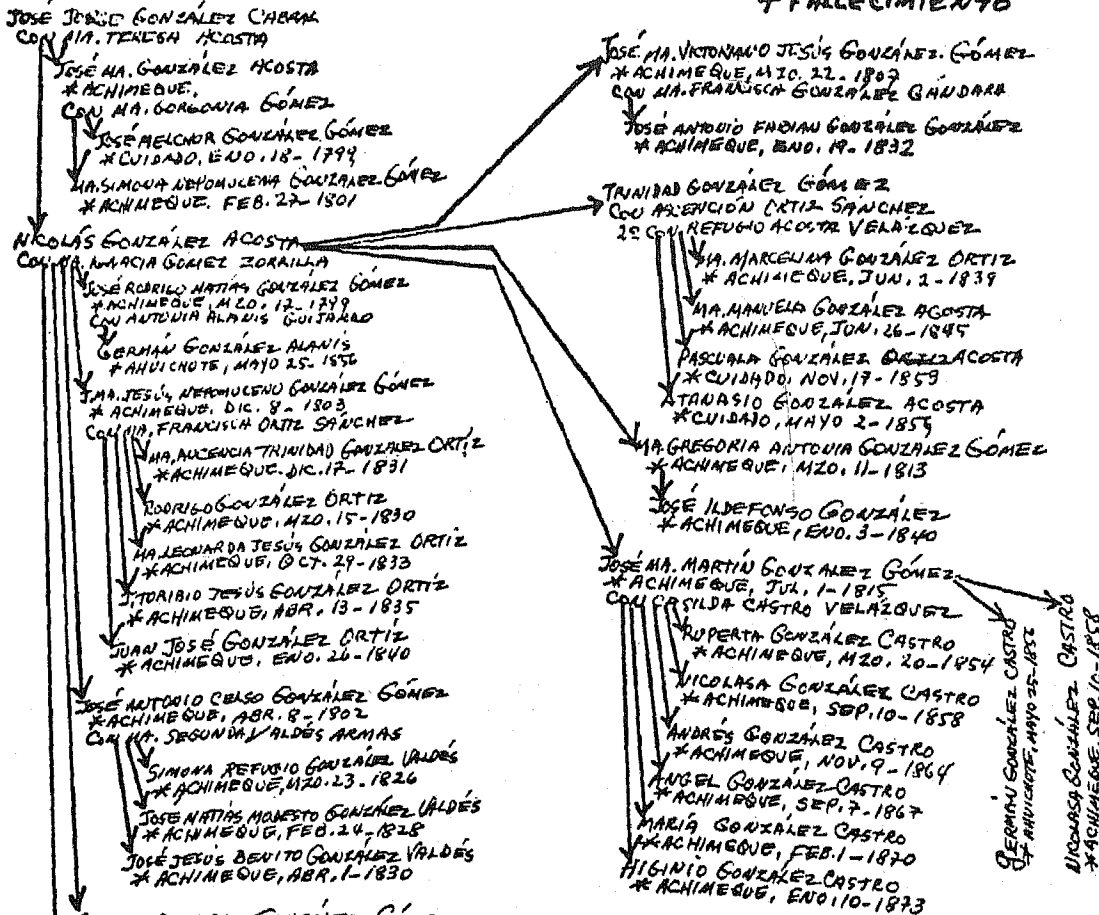 + FALLECIMIENTO
JOSÉ JORGE GONZÁLEZ CABRAL
CON MA. TERESA ACOSTA
JOSÉ MA. GONZÁLEZ ACOSTA
* ACHIMEQUE,
CON MA. GORGONIA GÓMEZ
JOSÉ MELCHOR GONZÁLEZ GÓMEZ
* CUIDADO, ENO. 18-1799
MA. SIMONA NEPOMUCENA GONZALEZ GÓMEZ
* ACHIMEQUE. FEB. 27-1801
NICOLÁS GONZÁLEZ ACOSTA
CON MA. IGNACIA GÓMEZ ZORRILLA
JOSÉ RODRIGO MATÍAS GONZÁLEZ GÓMEZ
* ACHIMEQUE, MZO. 17-1799
CON ANTONIA ALANIS GUIJARRO
GERMÁN GONZÁLEZ ALANÍS
* AHUICHOTE, MAYO 25-1856
J. MA. JESÚS NEPOMUCENO GONZÁLEZ GÓMEZ
* ACHIMEQUE. DIC. 8-1803
CON MA. FRANCISCA ORTIZ SÁNCHEZ
MA. AUCENCIA TRINIDAD GONZALEZ ORTÍZ
* ACHIMEQUE. DIC. 17-1831
RODRIGO GONZÁLEZ ORTIZ
* ACHIMEQUE, MZO. 15-1830
MA. LEONARDA JESÚS GONZÁLEZ ORTIZ
* ACHIMEQUE, OCT. 29-1833
J. TORIBIO JESÚS GONZÁLEZ ORTÍZ
* ACHIMEQUE, ABR. 13-1835
JUAN JOSÉ GONZÁLEZ ORTÍZ
* ACHIMEQUE, ENO. 26-1840
JOSÉ ANTONIO CELSO GONZÁLEZ GÓMEZ
* ACHIMEQUE, ABR. 8-1802
CON MA. SEGUNDA VALDÉS ARMAS
SIMONA REFUGIO GONZÁLEZ VALDÉS
* ACHIMEQUE, MZO. 23. 1826
JOSE MATÍAS MODESTO GONZÁLEZ VALDÉS
* ACHIMEQUE, FEB. 24-1828
JOSÉ JESÚS BENITO GONZÁLEZ VALDÉS
* ACHIMEQUE, ABR. 1-1830
JOSÉ MA. VICTORIANO JESÚS GONZÁLEZ GÓMEZ
* ACHIMEQUE, MZO. 22-1807
CON MA. FRANCISCA GONZÁLEZ GÁNDARA
JOSÉ ANTONIO FABIAN GONZÁLEZ GONZÁLEZ
* ACHIMEQUE, ENO. 19-1832
TRINIDAD GONZÁLEZ GÓMEZ
CON ASCENCIÓN ORTIZ SÁNCHEZ
2º CON REFUGIO ACOSTA VELÁZQUEZ
MA. MARCELINA GONZÁLEZ ORTIZ
* ACHIMEQUE, JUN. 2-1839
MA. MANUELA GONZÁLEZ ACOSTA
* ACHIMEQUE, JUN. 26-1845
PASCUALA GONZÁLEZ ORTIZ ACOSTA
* CUIDADO, NOV. 17-1859
ATANASIO GONZÁLEZ ACOSTA
* CUIDADO, MAYO 2-1855
MA. GREGORIA ANTONIA GONZALEZ GÓMEZ
* ACHIMEQUE, MZO. 11-1813
JOSÉ ILDEFONSO GONZÁLEZ
* ACHIMEQUE, ENO. 3-1840
JOSÉ MA. MARTÍN GONZALEZ GÓMEZ
* ACHIMEQUE, JUL. 1-1815
CON CASILDA CASTRO VELÁZQUEZ
RUPERTA GONZÁLEZ CASTRO
* ACHIMEQUE, MZO. 20-1854
NICOLASA GONZÁLEZ CASTRO
* ACHIMEQUE, SEP. 10-1858
ANDRÉS GONZÁLEZ CASTRO
* ACHIMEQUE, NOV. 9-1864
ANGEL GONZÁLEZ CASTRO
* ACHIMEQUE, SEP. 7-1867
MARÍA GONZÁLEZ CASTRO
* ACHIMEQUE, FEB. 1-1870
HIGINIO GONZÁLEZ CASTRO
* ACHIMEQUE, ENO. 10-1873
GERMÁN GONZÁLEZ CASTRO
* AHUICHOTE, MAYO 25-1856
NICOLASA GONZÁLEZ CASTRO
* ACHIMEQUE, SEP. 10-1858